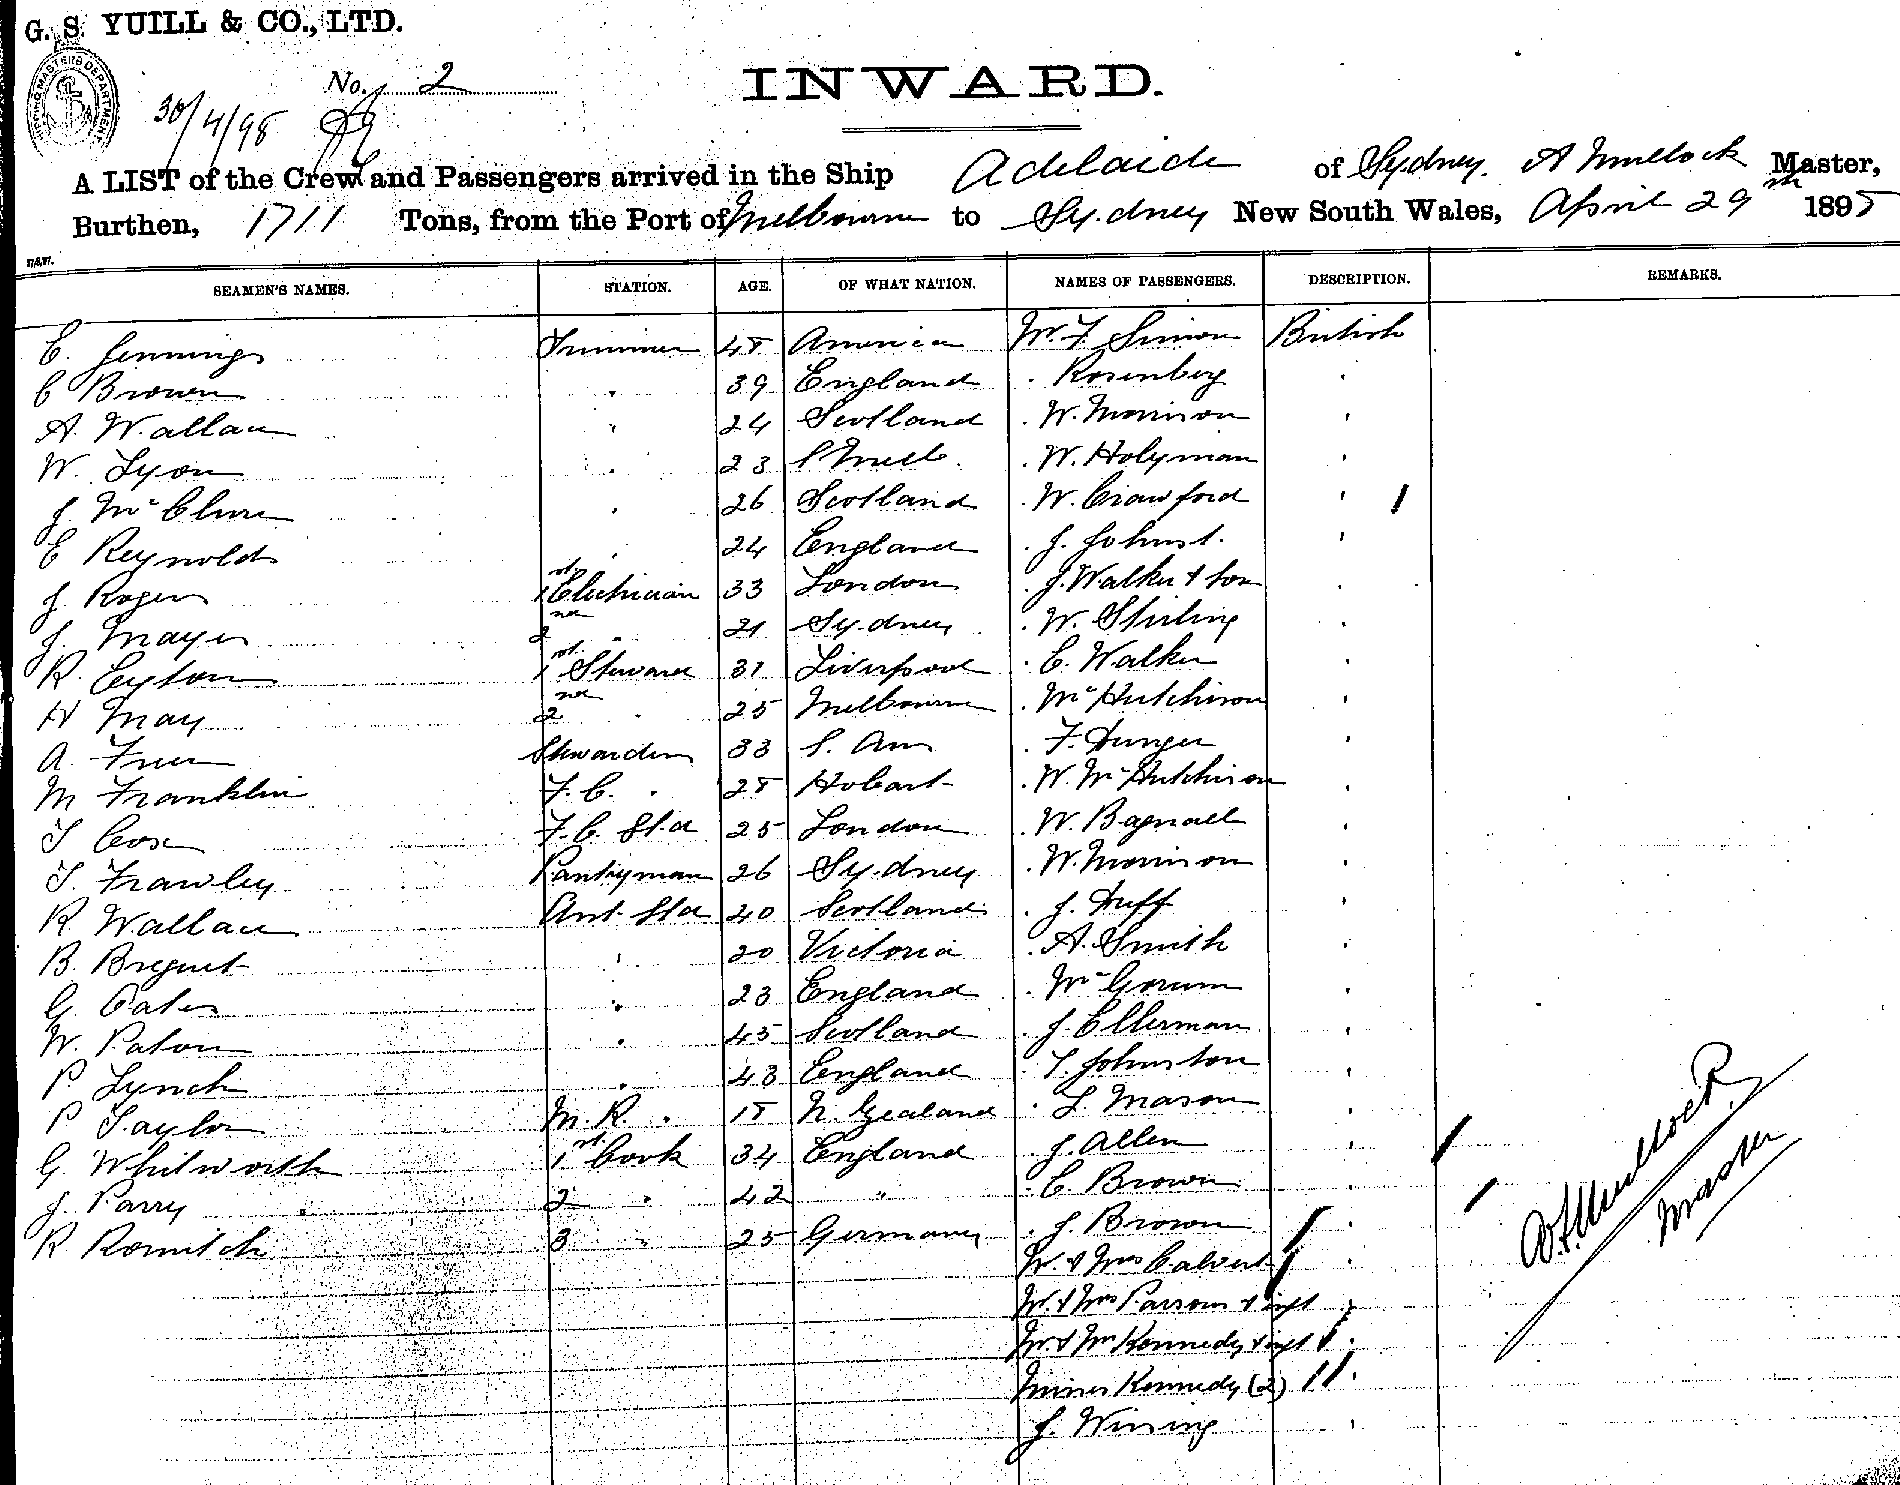 G. S. YUILL & CO., LTD.
No. 2
INWARD.
30/4/98
A LIST of the Crew and Passengers arrived in the Ship Adelaide of Sydney. A Mullock Master,
Burthen, 1711 Tons, from the Port of Melbourne to Sydney New South Wales, April 29th 1898
SEAMEN'S NAMES. STATION. AGE. OF WHAT NATION. NAMES OF PASSENGERS. DESCRIPTION. REMARKS.
C. Jennings Trimmer 48 America Mr. F Simon British
C Brown " 39 England " Rosenberg "
A. Wallace " 24 Scotland " W. Morrison "
W. Lyon " 23 " W. Holyman "
J. McClure " 26 Scotland " W. Crawford "
E Reynolds " 24 England " J. Johnst. "
J Roger 1st Electrician 33 London " J. Walker & Son "
J. Mayer 2nd " 21 Sydney " W. Stirling "
R. Eyton 1st Steward 31 Liverpool " C. Walker "
H May 2nd " 25 Melbourne " McHutchison "
A. Free Stewardess 33 " F. Hunger "
M Franklin F. C. " 28 Hobart " W. McHutchison "
T Cox F. C. Std 25 London " W. Bagnall "
T. Frawley Pantryman 26 Sydney " W. Morrison "
R Wallace Asst. Std 40 Scotland " J. Huff "
B. Breguet " 20 Victoria " A. Smith "
G Oates " 23 England " McGorum "
W. Paton " 45 Scotland " J. Ellerman "
P. Lynch " 43 England " T. Johnston "
P Taylor M. R. " 18 N. Zealand " L. Mason "
G Whitworth 1st Cook 34 England " J. Allen "
J. Parry 2 " 42 " " C. Brown "
R Romitch 3 " 25 Germany " J. Brown "
Mr. & Mrs Calvert "
Mr. & Mrs Parsons & inft "
Mr. & Mrs Kennedy & inft "
Misses Kennedy (2) "
J. Wining "
A. Mullock
Master